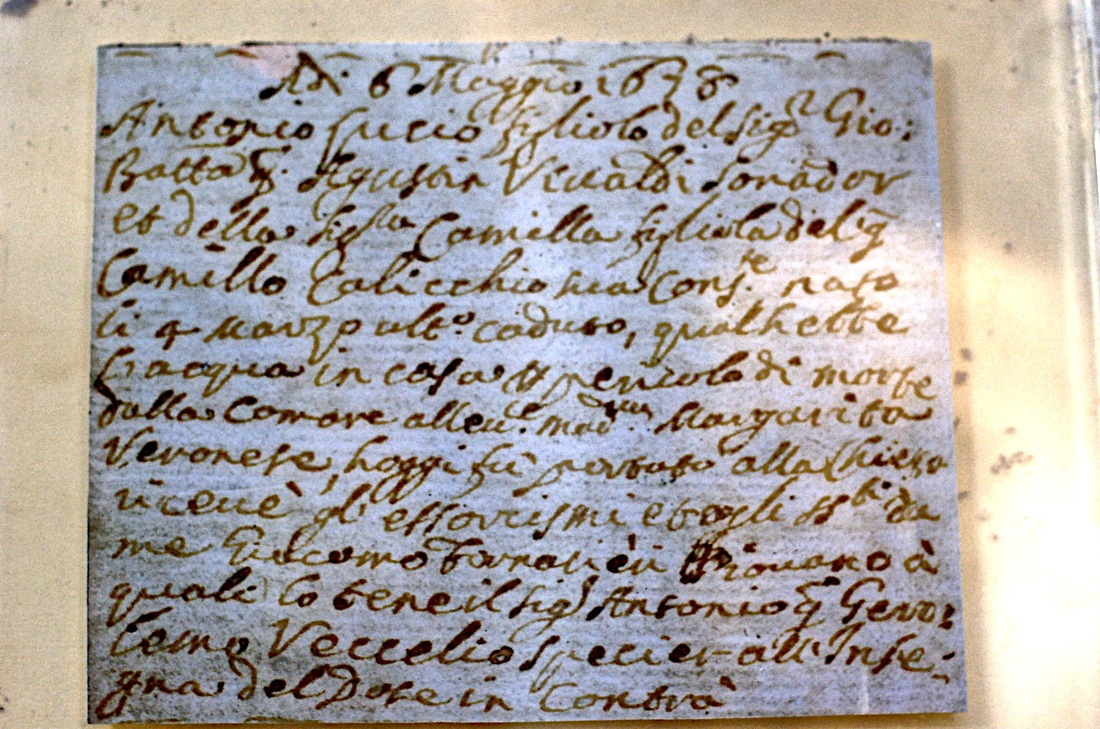 Adi 6 Maggio 1678
Antonio Lucio figliolo del sigr Gio:
Batta q. Agustin Viualdi sonador
et della sigra Camilla figliola del q
Camillo Calicchio sua conste nato
li 4 Marzo ulto caduto, qual hebbe
l'acqua in casa p pericolo di morte
dalla Comare alleue madna Margarita
Veronese, hoggi fù portato alla Chiesa
riceuè gl'essorcismi et ogli SSti da
me Giacomo Fornacieri Piouano à
quali lo tene il sigr Antonio q Gero:
lemo Veccelio specier all'Inse:
gna del Dose in Contrà